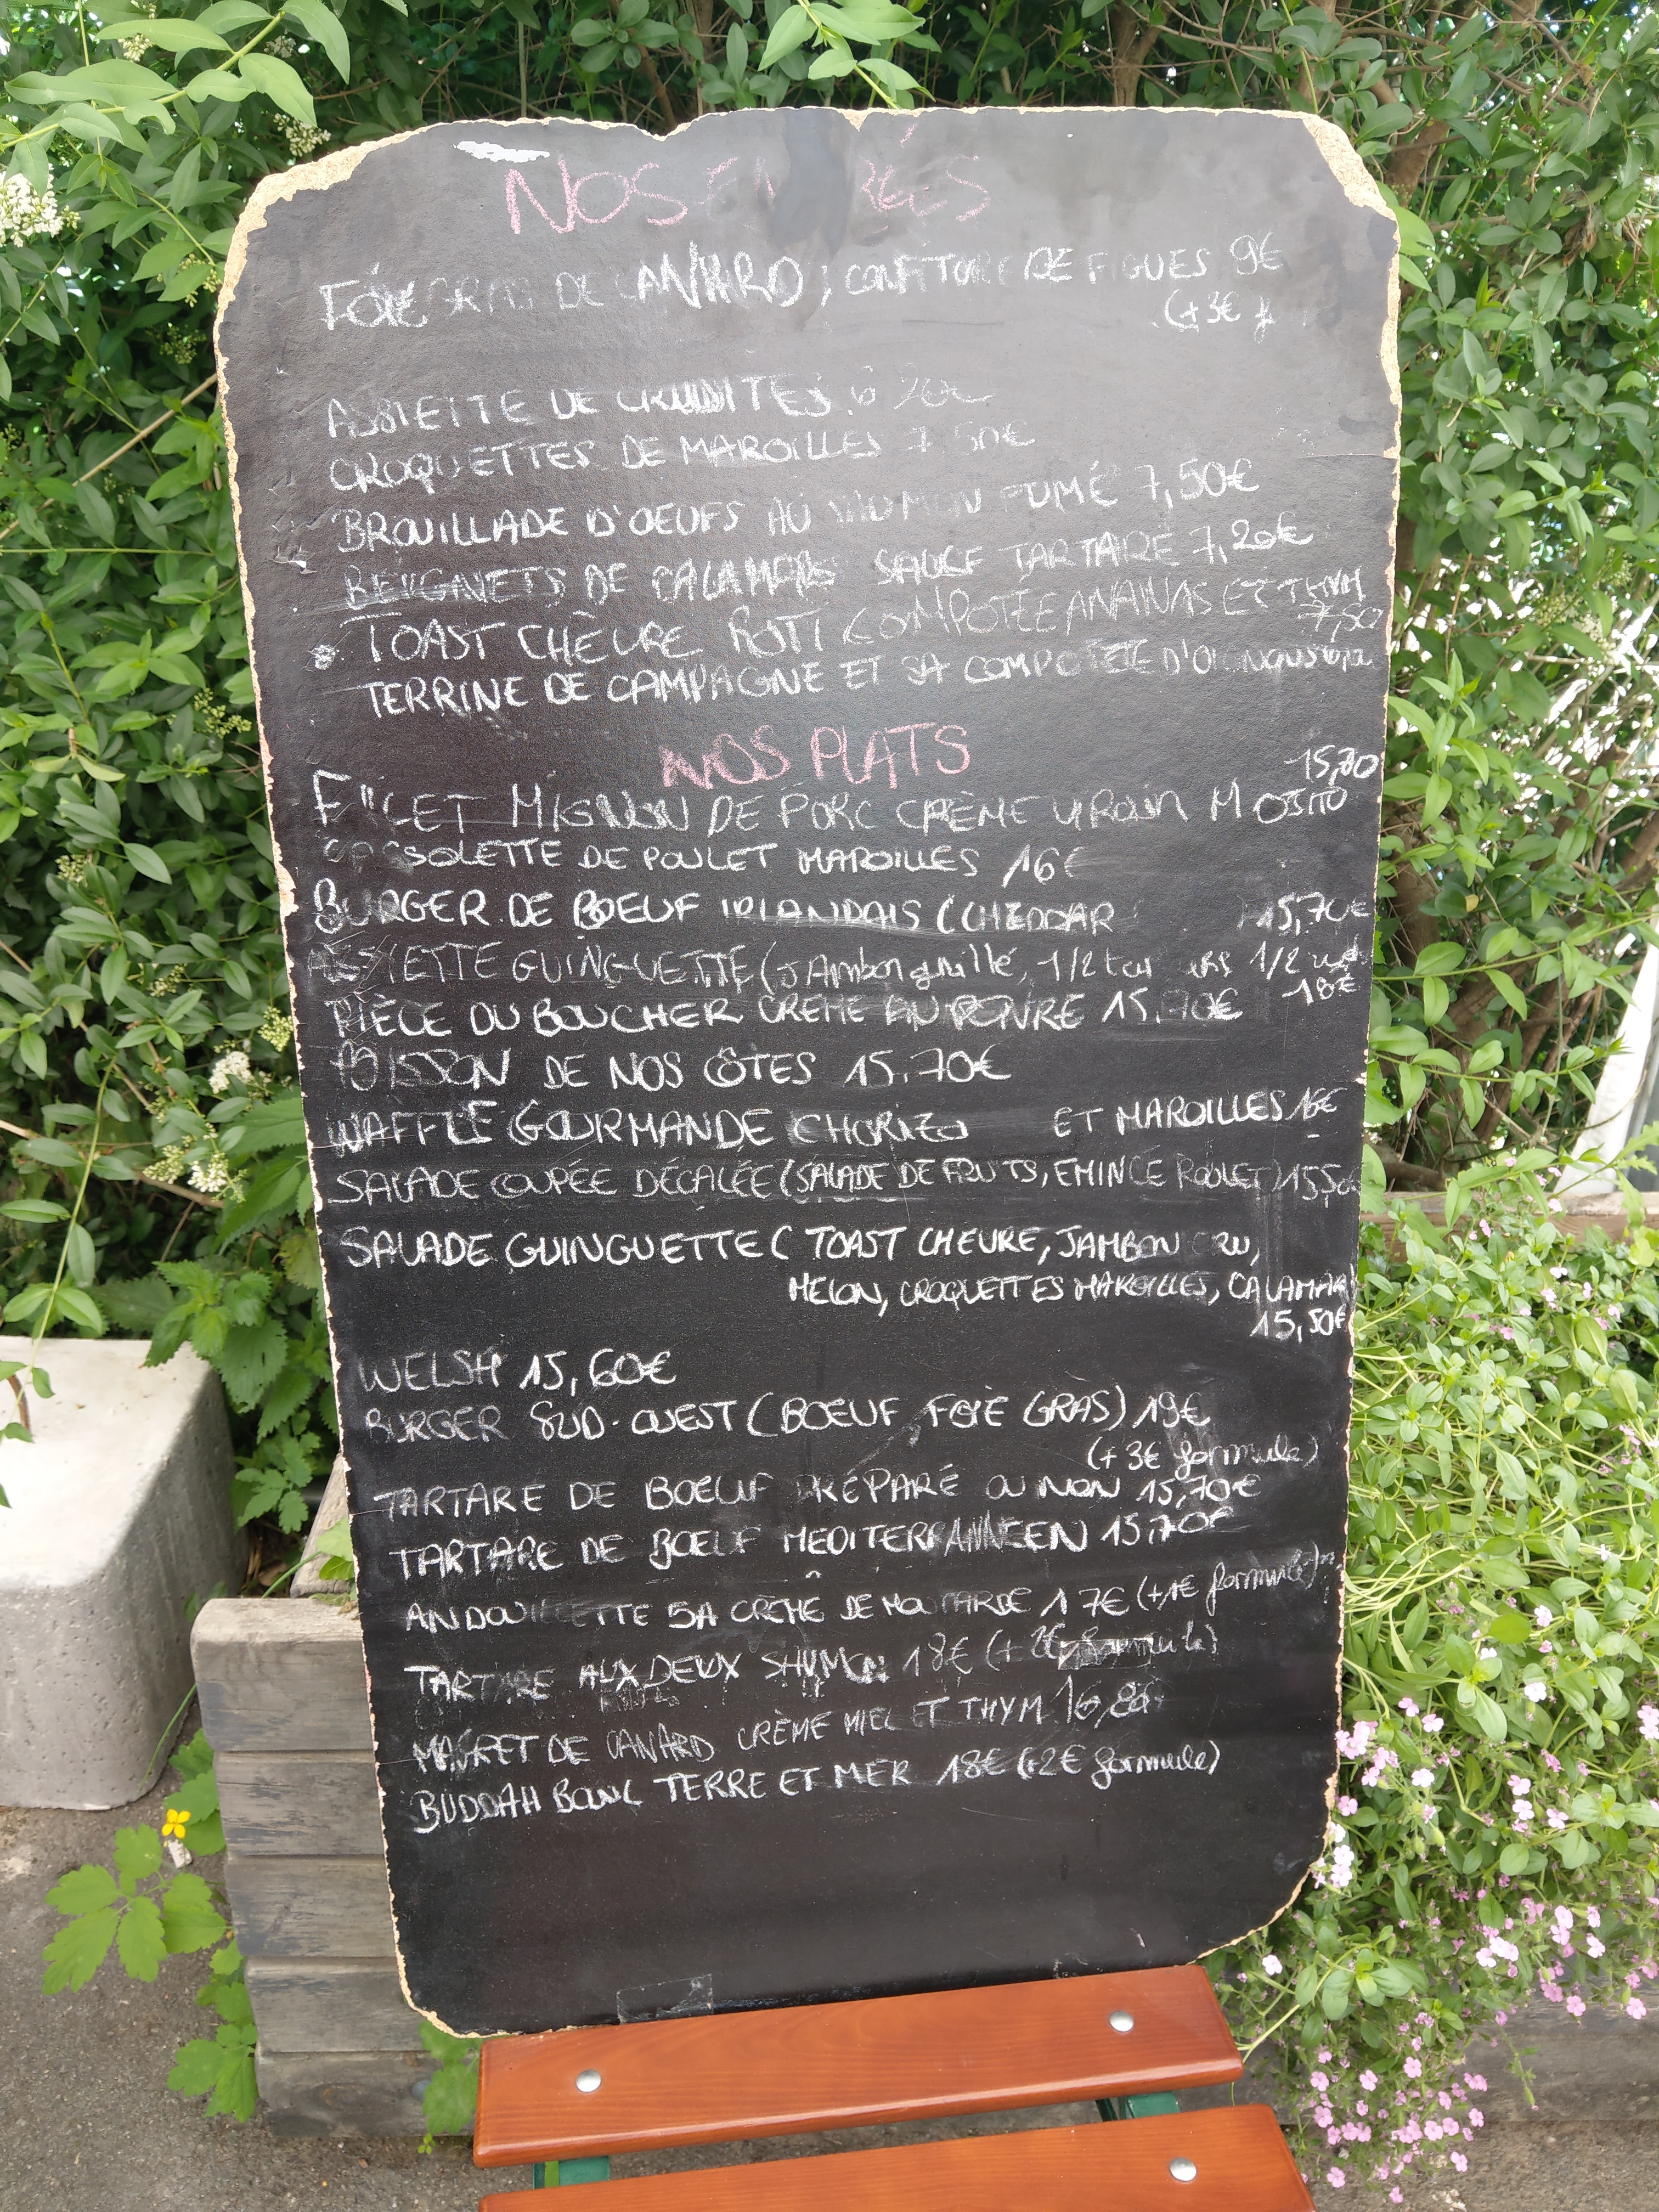 NOS
FOIE GRAS DE CANARD ; CONFITURE DE FIGUES 9€
(+3€
ASSIETTE DE CRUDITES
CROQUETTES DE MAROILLES 7 50€
BROUILLADE D'OEUFS AU FUMÉ 7,50€
BEIGNETS DE CALAMARS SAUCE TARTAIRE 7,20€
TOAST CHÈVRE ROTI COMPOTÉE ANANAS ET THYM
7,50
TERRINE DE CAMPAGNE ET SA COMPOTÉE D'OIGNONS
NOS PLATS
15,80
FILET MIGNON DE PORC CRÈME MOJITO
CASSOLETTE DE POULET MAROILLES 16€
BURGER DE BOEUF IRLANDAIS (CHEDDAR 15,70€
ASSIETTE GUINGUETTE (JAmbon grillé, 1/2 1/2
18€
PIÈCE DU BOUCHER CREME AU POIVRE 15.70€
POISSON DE NOS CÔTES 15.70€
WAFFLE GOURMANDE CHORIZO ET MAROILLES 16€
SALADE COUPÉE DÉCALÉE (SALADE DE FRUITS, EMINCÉ POULET) 15,50€
SALADE GUINGUETTE ( TOAST CHEVRE, JAMBON CRU,
MELON, CROQUETTES MAROILLES, CALAMAR
15,50€
WELSH 15,60€
BURGER SUD-OUEST (BOEUF FOIE GRAS) 19€
(+3€ formule)
TARTARE DE BOEUF PRÉPARÉ OU NON 15,70€
TARTARE DE BOEUF MEDITERRANNEEN 15,70€
ANDOUILLETTE 5A CRÈME DE MOUTARDE 17€ (+1€ formule)
TARTARE AUX DEUX 18€ (+2€ formule)
MAGRET DE CANARD CRÈME MIEL ET THYM 16,80€
BUDDAH BOWL TERRE ET MER 18€ (+2€ formule)